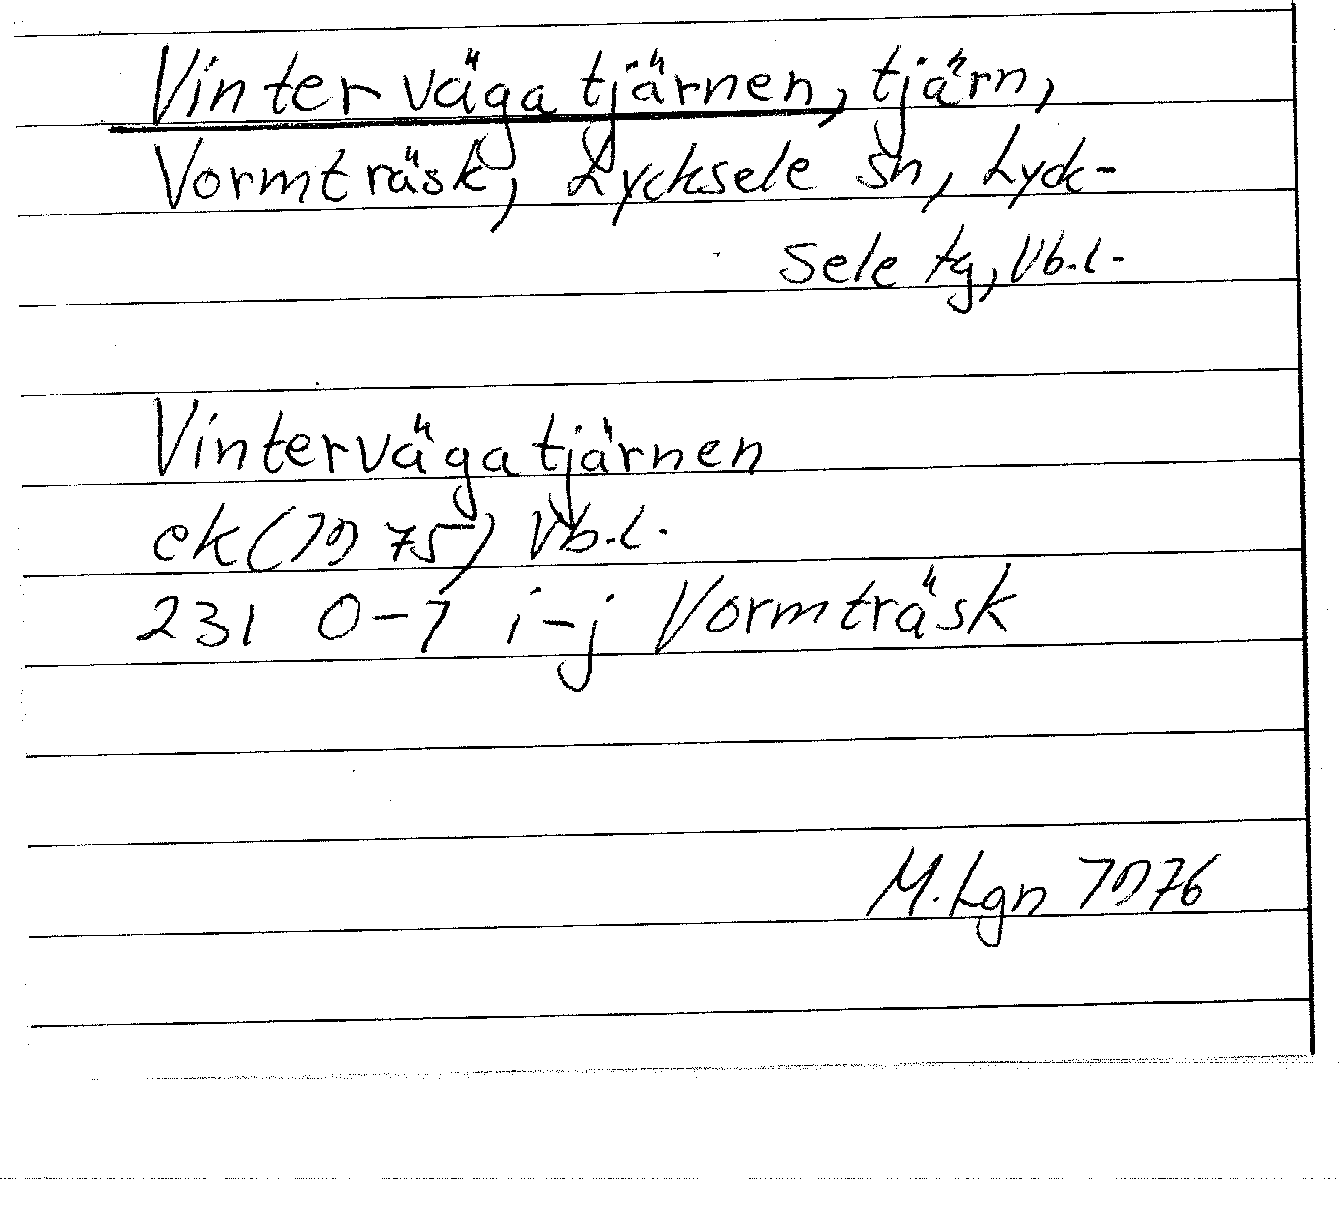 Vintervägatjärnen, tjärn,
Vormträsk, Lycksele sn, Lyck-
sele tg, Vb.l.
Vintervägatjärnen
ek(1975) Vb.l.
231 0-1 i-j Vormträsk
M. Lgn 1976